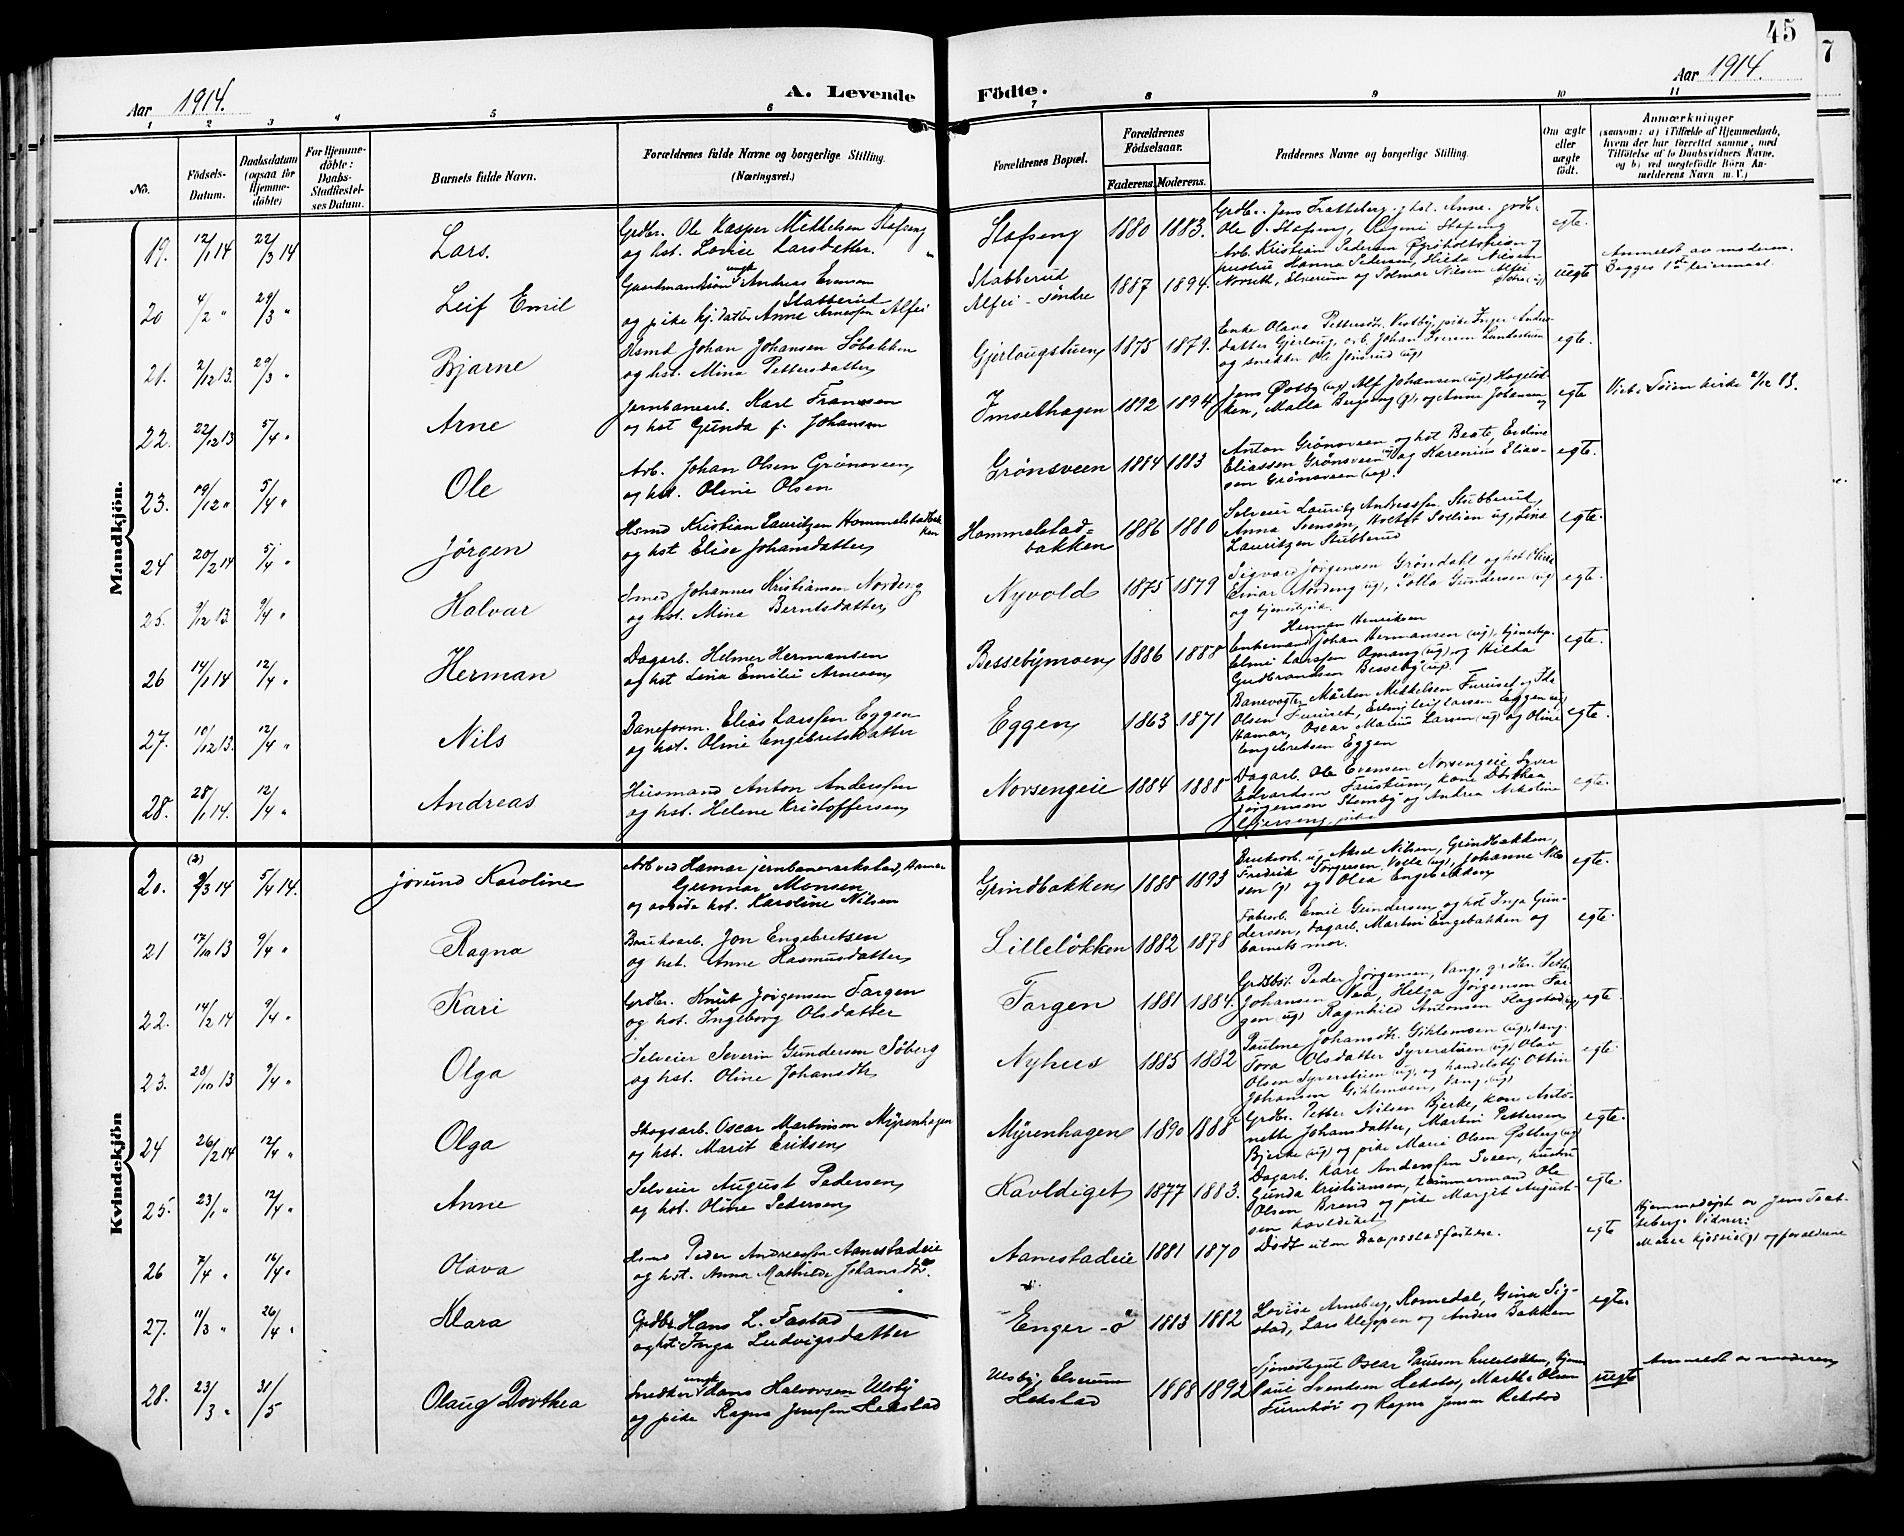 45
7
Aar 1914.
A. Levende
Födte.
Aar 1914.
1 2 3 4 5 6 7 8 9 10 11
No.
Födsels-
Datum.
Daabsdatum
(ogsaa for
Hjemme-
döbte)
For Hjemme-
döbte:
Daabs-
Stadfæstel-
ses Datum.
Barnets fulde Navn.
Forældrenes fulde Navne og borgerlige Stilling.
(Næringsvei.)
Forældrenes Bopæl.
Forældrenes
Födselsaar.
Faderens. Moderens.
Faddernes Navne og borgerlige Stilling.
Om ægte
eller
uægte
födt.
Anmærkninger
(saasom: a) i Tilfælde af Hjemmedaab,
hvem der har forrettet samme, med
Tilföielse af to Daabsvidners Navne,
og b) ved uægtefödte Börn An-
melderens Navn m. V.)
Mandkjön.
19. 12/1 14 22/3 14 Lars.
Grdbr. Ole Kasper Mikkelsen Stafseng
og hst. Lovise Larsdatter.
Stafseng 1880 1883.
Grdbr. Jens Tratteberg, hst. Anne, grdb.
Ole O. Stafseng, Stafseng
egte.
20 4/2 " 29/3 " Leif Emil
Gaardmandssön ungk Andreas Evensen
Stabberud
og pike hj. datter Anne Arnesen Alfei
Skabberud
Alfei - söndre 1887 1894.
Arb. Kristian Pedersen
hustru Hanna Pedersen, Hilda Nilsen
Elverum og Solmar Nilsen Alfei
uegte
Anmeldt av moderen.
Begges 1ste leiermaal.
21. 2/12 13. 29/3 " Bjarne
Hsmd Johan Johansen Söbakken
og hst. Mina Pettersdatter
Gjerlaugstuen 1875 1879.
Enke Olava Pettersdtr. Vestby, pike Inger Anders-
datter Gjerlaug, arb. Johan Iversen
og snedker Ole (ug)
egte.
22. 22/12 13 5/4 " Arne
Jernbanearb. Karl Fransen
og hst Gunda f. Johansen
Imselhagen 1892 1894
Jens Östby (ug), Alf Johansen (ug) Hagelök-
ken, Malla Bergseng (p), og Anna Johansen
egte
Viet i Töien kirke 21/12 13.
23. 19/12 " 5/4 " Ole
Arb. Johan Olsen Grönsveen
og hst. Oline Olsen
Grönsveen 1884 1883
Anton Grönsveen og hst Beate, Eveline
Eliassen Grönsveen og Karenius Elias-
sen Grönsveen (ug).
egte.
24 20/2 14 5/4 " Jörgen
Hsmd Kristian Lauritzen Hommelstadbak-
ken
og hst Elise Johansdatter
Hommelstad-
bakken 1886 1880
Selveier Lauritz Andreassen, Stubberud,
Anna Svensen, ug, Lina
Lauritzen Stubberud
egte.
25. 9/12 13. 9/4 " Halvar
Smed Johannes Kristiansen Nordeng
og hst. Mina Berntsdatter
Nyvold 1875 1879
Sigvard Jörgensen Gröndahl og hst Oline
Einar Nordeng (ug), Gundersen (ug)
og tjenestpik.
egte.
26 14/1 14 12/4 " Herman
Dagarb. Helmer Hermansen
og hst Lina Emilie Arnesen
Bessebymoen 1886 1888
Herman Henriksen
Enkemand, Johan Hermansen (ug), tjenestep.
Elmi Larssen (ug) og Hilda
Gudbrandsen Besseby (ug).
egte.
27. 10/12 13. 12/4 " Nils
Baneform. Elias Larssen Eggen
og hst. Oline Engebretsdatter
Eggen 1863 1871
Banevogter Mårten Mikkelsen Furuset og Ida
Olsen Furuset, Larsen Eggen
Hamar, Oscar Marius Larsen (ug) og Oline
Engebretsen Eggen
egte.
28. 28/1 14. 12/4 " Andreas
Husmand Anton Anderssen
og hst. Helene Kristoffersen
Norsengeie 1884 1888
Dagarb. Ole Evensen Norsengeie, Syver
Edvardsen kone Dorthea
Jörgensen Stensby og Andrea Nikoline
pike
egte.
Kvindekjön
20. (2) 9/3 14 5/4 14. Jorund Karoline
Arb ved Hamar jernbaneverksted, Hamar
Gunnar Monsen
og hst. Karoline Nilsen
Grindbakken 1888 1893
Axel Nilsen, Grindbakken,
Fredrik Jörgersen (ug), Johanne Nil-
sen (p) og Olea Engebakken
egte.
21 17/10 13 9/4 " Ragna
Jon Engebretsen
og hst. Anne Rasmusdatter
Lillelökken 1882 1878
Fabrarb. Emil Gundersen og hst Inga Gun-
dersen, dagarb. Martin Engebakken og
barnets mor.
egte.
22. 14/2 14 9/4 " Kari
Grdbr. Knut Jörgensen Fargen
og hst. Ingeborg Olsdatter
Fargen 1881 1884.
Peder Jörgensen, Vang, grdbr. Petter
Johansen Helga Jörgensen Far-
gen (ug) Ragnhild Antonsen
egte.
23. 28/10 13 9/4 " Olga
Selveier Severin Gundersen Söberg
og hst. Oline Johansdtr
Nyhus 1885 1882
Pauline Johansdtr. Giklemoen (ug), Vang.
Tora Olsdatter Syverstuen (ug) Olav
Olsen Syverstuen (ug), og handelsbtj Ottin
Johansen Giklemoen, Vang, (ug)
egte.
24 26/2 14 12/4 " Olga
Skogsarb. Oscar Martinsen Myrenhagen
og hst. Marit Eriksen
Myrenhagen 1890 1888
Grdbr. Petter Nilsen Bjerke, kone Anto-
nette Johansdatter, Martin Pettersen
Bjerke (ug) og pike Marie Olsen Östberg (ug)
egte.
25. 23/1 " 12/4 " Anne
Selveier August Pedersen
og hst. Oline Pedersen
Kavldiget 1877 1883.
Dagarb. Kare Anderssen Sveen, hustru
Gunda Kristiansen, tömmermand Ole
Olsen Brend og pike Margit August-
sen Kavldiket
egte.
26 7/4 " 16/4 " Olava
Hsmd Peder Andreassen Aanestadeie
og hst. Anna Mathilde Johansdtr.
Aanestadeie 1881 1870
Död uten daapsstadfæstelse.
egte
Hjemmedöpt av Jens Trat-
teberg. Vidner:
Marie (p) og forældrene
27. 11/3 " 26/4 " Klara
Grdbr. Hans L. Fastad
og hst Inga Ludvigsdatter
Enger - ö 1883 1882
Lovise Arneberg, Romedal, Gina Sig-
stad, Lars Kleppen og Anders Bakken
egte.
28. 23/3 " 31/5 Olaug Dorthea
Snedker ungk Hans Halvorsen Ulsby
og pike Ragna Jenssen Hekstad
Ulsby, Elverum
Hekstad 1888 1892
Tjenestegut Oscar Paulsen Lillelökken,
Paul Svendsen Hekstad, Marthe Olsen
og Ragna Jensen Hekstad
uegte
Anmeldt av moderen